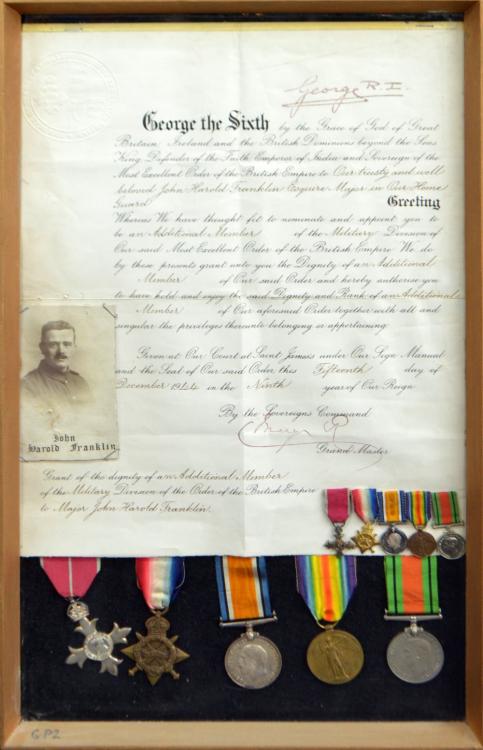 George R.I.
George the Sixth by the Grace of God of Great
Britain Ireland and the British Dominions beyond the Seas
King, Defender of the Faith Emperor of India and Sovereign of the
Most Excellent Order of the British Empire to Our trusty and well
beloved John Harold Franklin Esquire Major in Our Home
Guard Greeting
Whereas We have thought fit to nominate and appoint you to
be an Additional Member of the Military Division of
Our said Most Excellent Order of the British Empire We do
by these presents grant unto you the Dignity of an Additional
Member of Our said Order and hereby authorise you
to have hold and enjoy the said Dignity and Rank of an Additional
Member of Our aforesaid Order together with all and
singular the privileges thereunto belonging or appertaining
Given at Our Court at Saint James's under Our Sign Manual
and the Seal of Our said Order this Fifteenth day of
December 1944 in the Ninth year of Our Reign
By the Sovereign's Command
Grand Master
John
Harold Franklin
Grant of the dignity of an Additional Member
of the Military Division of the Order of the British Empire
to Major John Harold Franklin.
GP2